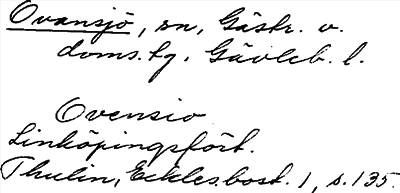 Ovansjö, sn, Gästr. v.
doms.hg, Gävleb. l.
Ovensio
Linköpingsfört.
Thulin, Eckles.bost. 1, s. 135.